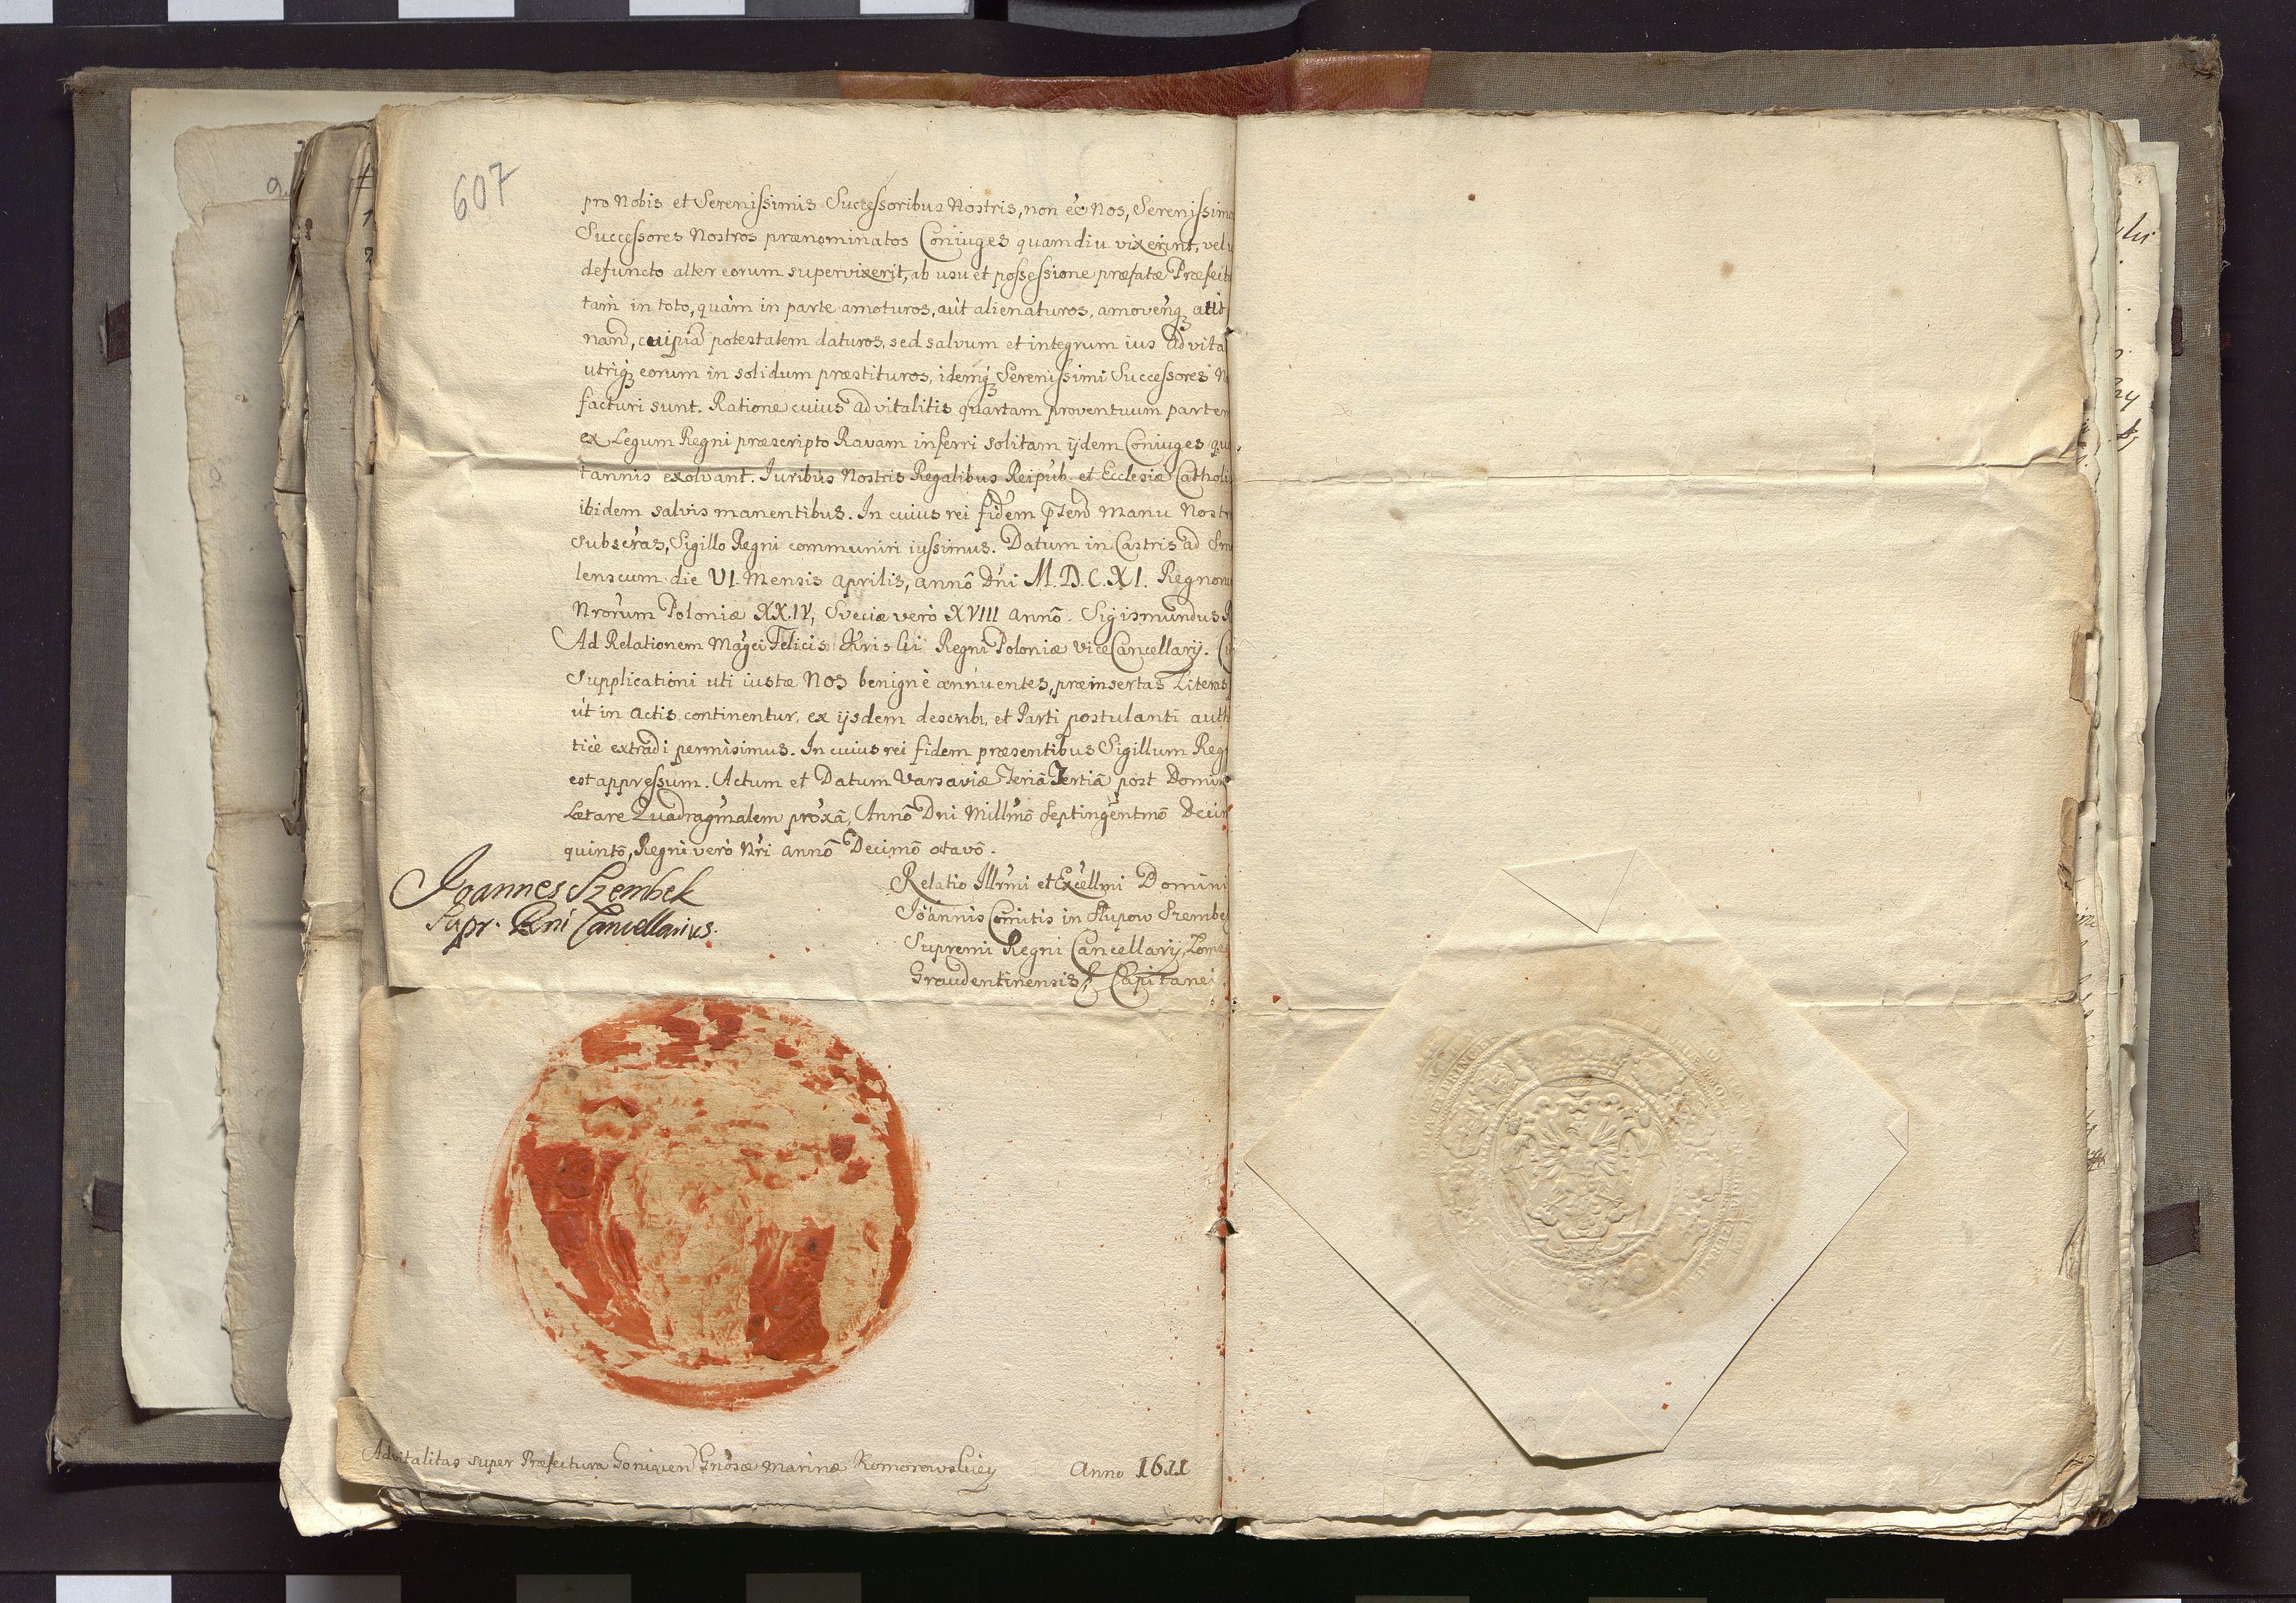 607
pro Nobis et Serenissimis Successoribus Nostris, non eē Nos, Serenissimo
Successores Nostros prænominatos Coniuges quamdiu vixerint, vel
defuncto alter eorum supervixerit, ab usu et possessione præfatæ Præfect
tam in toto, quàm in parte amoturos, aut alienaturos, amovenq3 aut
nand, cuipiã potestatem daturos, sed salvum et integrum ius advita
utriq3 eorum in solidum præstituros, idemq3 Serenissimi Successores N
facturi sunt. Ratione cuius advitalitis quartam proventuum partem
ex Legum Regni præscripto Ravam inferri solitam ijdem Coniuges qu
tannis exolvant. Iuribus Nostris Regalibus Reipub. et Ecclesiæ Catholi
ibidem salvis manentibus. In cuius rei fidem Manu Nostr
subscras, Sigillo Regni communiri iussimus. Datum in Castris ad Sm
lenscum die VI Mensis Aprilis, Annō Dni M.D.C.XI. Regnoru
Nrorum Poloniæ XXIV, Sveciæ verò XVIII annō. Sigismundus R
Ad Relationem Magci Felicis Kriski Regni Poloniæ ViceCancellarij.
Supplicationi uti iustæ Nos benignè annuentes, præinsertas Literas
ut in Actis continentur, ex ijsdem describi, et Parti postulanti auth
ticè extradi permisimus. In cuius rei fidem præsentibus Sigillum Reg
est appressum. Actum et Datum Varsaviæ Feriã Tertiã post Domini
Lætare Quadragmalem proxã, Annō Dni Millmō Septingentmō Decim
quintō, Regni verò Nri annō Decimō octavō.
Joannes Szembek
Supr. Rni Cancellarius.
Relatio Illrmi et Excellmi Domini
Ioannis Comitis in Słupow Szembe
Supremi Regni Cancellarij, Lomz
Graudentinensis, & Capitanei
Advitalitas super Præfectura Goniąen Gnosæ Marinæ Komorowskiey Anno 1611